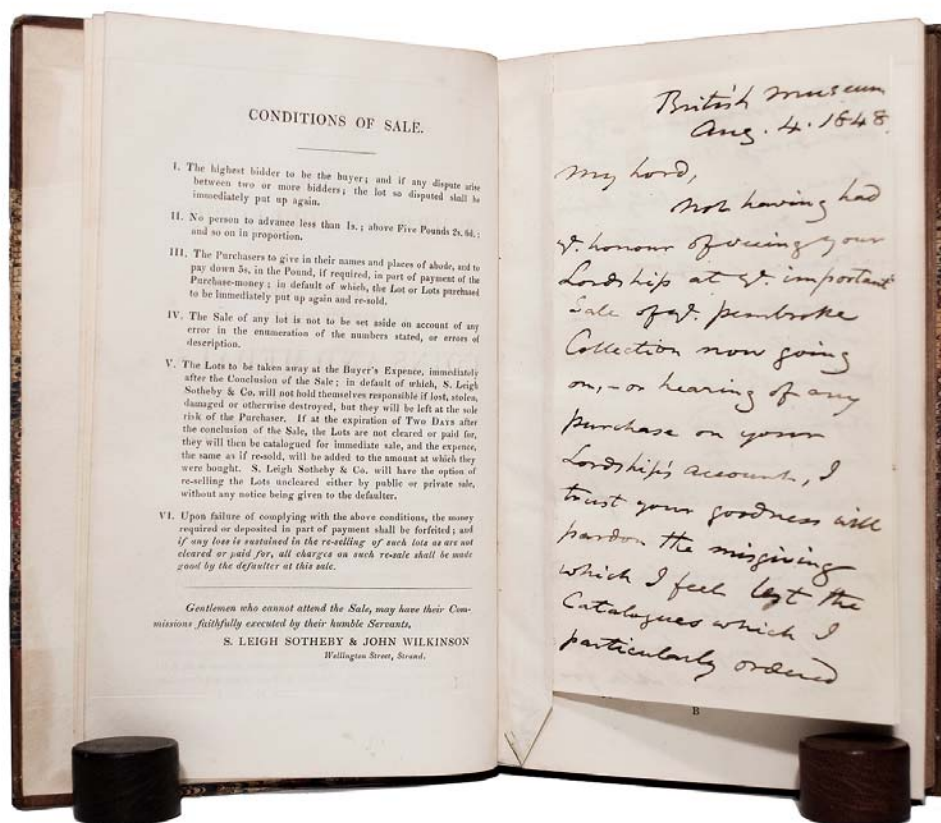 CONDITIONS OF SALE.
I. The highest bidder to be the buyer; and if any dispute arise
between two or more bidders; the lot so disputed shall be
immediately put up again.
II. No person to advance less than 1s.; above Five Pounds 2s. 6d.;
and so on in proportion.
III. The Purchasers to give in their names and places of abode, and to
pay down 5s. in the Pound, if required, in part of payment of the
Purchase-money; in default of which, the Lot or Lots purchased
to be immediately put up again and re-sold.
IV. The Sale of any lot is not to be set aside on account of any
error in the enumeration of the numbers stated, or errors of
description.
V. The Lots to be taken away at the Buyer's Expence, immediately
after the Conclusion of the Sale; in default of which, S. Leigh
Sotheby & Co. will not hold themselves responsible if lost, stolen,
damaged or otherwise destroyed, but they will be left at the sole
risk of the Purchaser. If at the expiration of Two Days after
the conclusion of the Sale, the Lots are not cleared or paid for,
they will then be catalogued for immediate sale, and the expence,
the same as if re-sold, will be added to the amount at which they
were bought. S. Leigh Sotheby & Co. will have the option of
re-selling the Lots uncleared either by public or private sale,
without any notice being given to the defaulter.
VI. Upon failure of complying with the above conditions, the money
required or deposited in part of payment shall be forfeited; and
if any loss is sustained in the re-selling of such lots as are not
cleared or paid for, all charges on such re-sale shall be made
good by the defaulter at this sale.
Gentlemen who cannot attend the Sale, may have their Com-
missions faithfully executed by their humble Servants,
S. LEIGH SOTHEBY & JOHN WILKINSON
Wellington Street, Strand.
British Museum
Aug. 4. 1848.
My Lord,
Not having had
ye. honour of seeing your
Lordship at ye. important
Sale of ye. Pembroke
Collection now going
on, - or hearing of any
purchase on your
Lordship's account, I
trust your goodness will
pardon the misgiving
which I feel lest the
Catalogues which I
particularly ordered
B